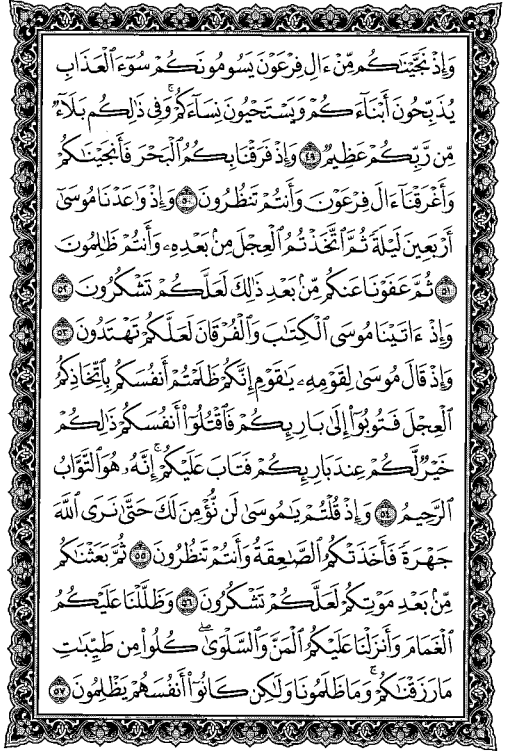 وَإِذْ نَجَّيْنَٰكُم مِّنْ ءَالِ فِرْعَوْنَ يَسُومُونَكُمْ سُوٓءَ ٱلْعَذَابِ
يُذَبِّحُونَ أَبْنَآءَكُمْ وَيَسْتَحْيُونَ نِسَآءَكُمْ ۚ وَفِى ذَٰلِكُم بَلَآءٌ
مِّن رَّبِّكُمْ عَظِيمٌ ٤٩ وَإِذْ فَرَقْنَا بِكُمُ ٱلْبَحْرَ فَأَنجَيْنَٰكُمْ
وَأَغْرَقْنَآ ءَالَ فِرْعَوْنَ وَأَنتُمْ تَنظُرُونَ ٥٠ وَإِذْ وَٰعَدْنَا مُوسَىٰٓ
أَرْبَعِينَ لَيْلَةً ثُمَّ ٱتَّخَذْتُمُ ٱلْعِجْلَ مِنۢ بَعْدِهِۦ وَأَنتُمْ ظَٰلِمُونَ
٥١ ثُمَّ عَفَوْنَا عَنكُم مِّنۢ بَعْدِ ذَٰلِكَ لَعَلَّكُمْ تَشْكُرُونَ ٥٢
وَإِذْ ءَاتَيْنَا مُوسَى ٱلْكِتَٰبَ وَٱلْفُرْقَانَ لَعَلَّكُمْ تَهْتَدُونَ ٥٣
وَإِذْ قَالَ مُوسَىٰ لِقَوْمِهِۦ يَٰقَوْمِ إِنَّكُمْ ظَلَمْتُمْ أَنفُسَكُم بِٱتِّخَاذِكُمُ
ٱلْعِجْلَ فَتُوبُوٓا۟ إِلَىٰ بَارِئِكُمْ فَٱقْتُلُوٓا۟ أَنفُسَكُمْ ذَٰلِكُمْ
خَيْرٌ لَّكُمْ عِندَ بَارِئِكُمْ فَتَابَ عَلَيْكُمْ ۚ إِنَّهُۥ هُوَ ٱلتَّوَّابُ
ٱلرَّحِيمُ ٥٤ وَإِذْ قُلْتُمْ يَٰمُوسَىٰ لَن نُّؤْمِنَ لَكَ حَتَّىٰ نَرَى ٱللَّهَ
جَهْرَةً فَأَخَذَتْكُمُ ٱلصَّٰعِقَةُ وَأَنتُمْ تَنظُرُونَ ٥٥ ثُمَّ بَعَثْنَٰكُم
مِّنۢ بَعْدِ مَوْتِكُمْ لَعَلَّكُمْ تَشْكُرُونَ ٥٦ وَظَلَّلْنَا عَلَيْكُمُ
ٱلْغَمَامَ وَأَنزَلْنَا عَلَيْكُمُ ٱلْمَنَّ وَٱلسَّلْوَىٰ ۖ كُلُوا۟ مِن طَيِّبَٰتِ
مَا رَزَقْنَٰكُمْ ۖ وَمَا ظَلَمُونَا وَلَٰكِن كَانُوٓا۟ أَنفُسَهُمْ يَظْلِمُونَ ٥٧